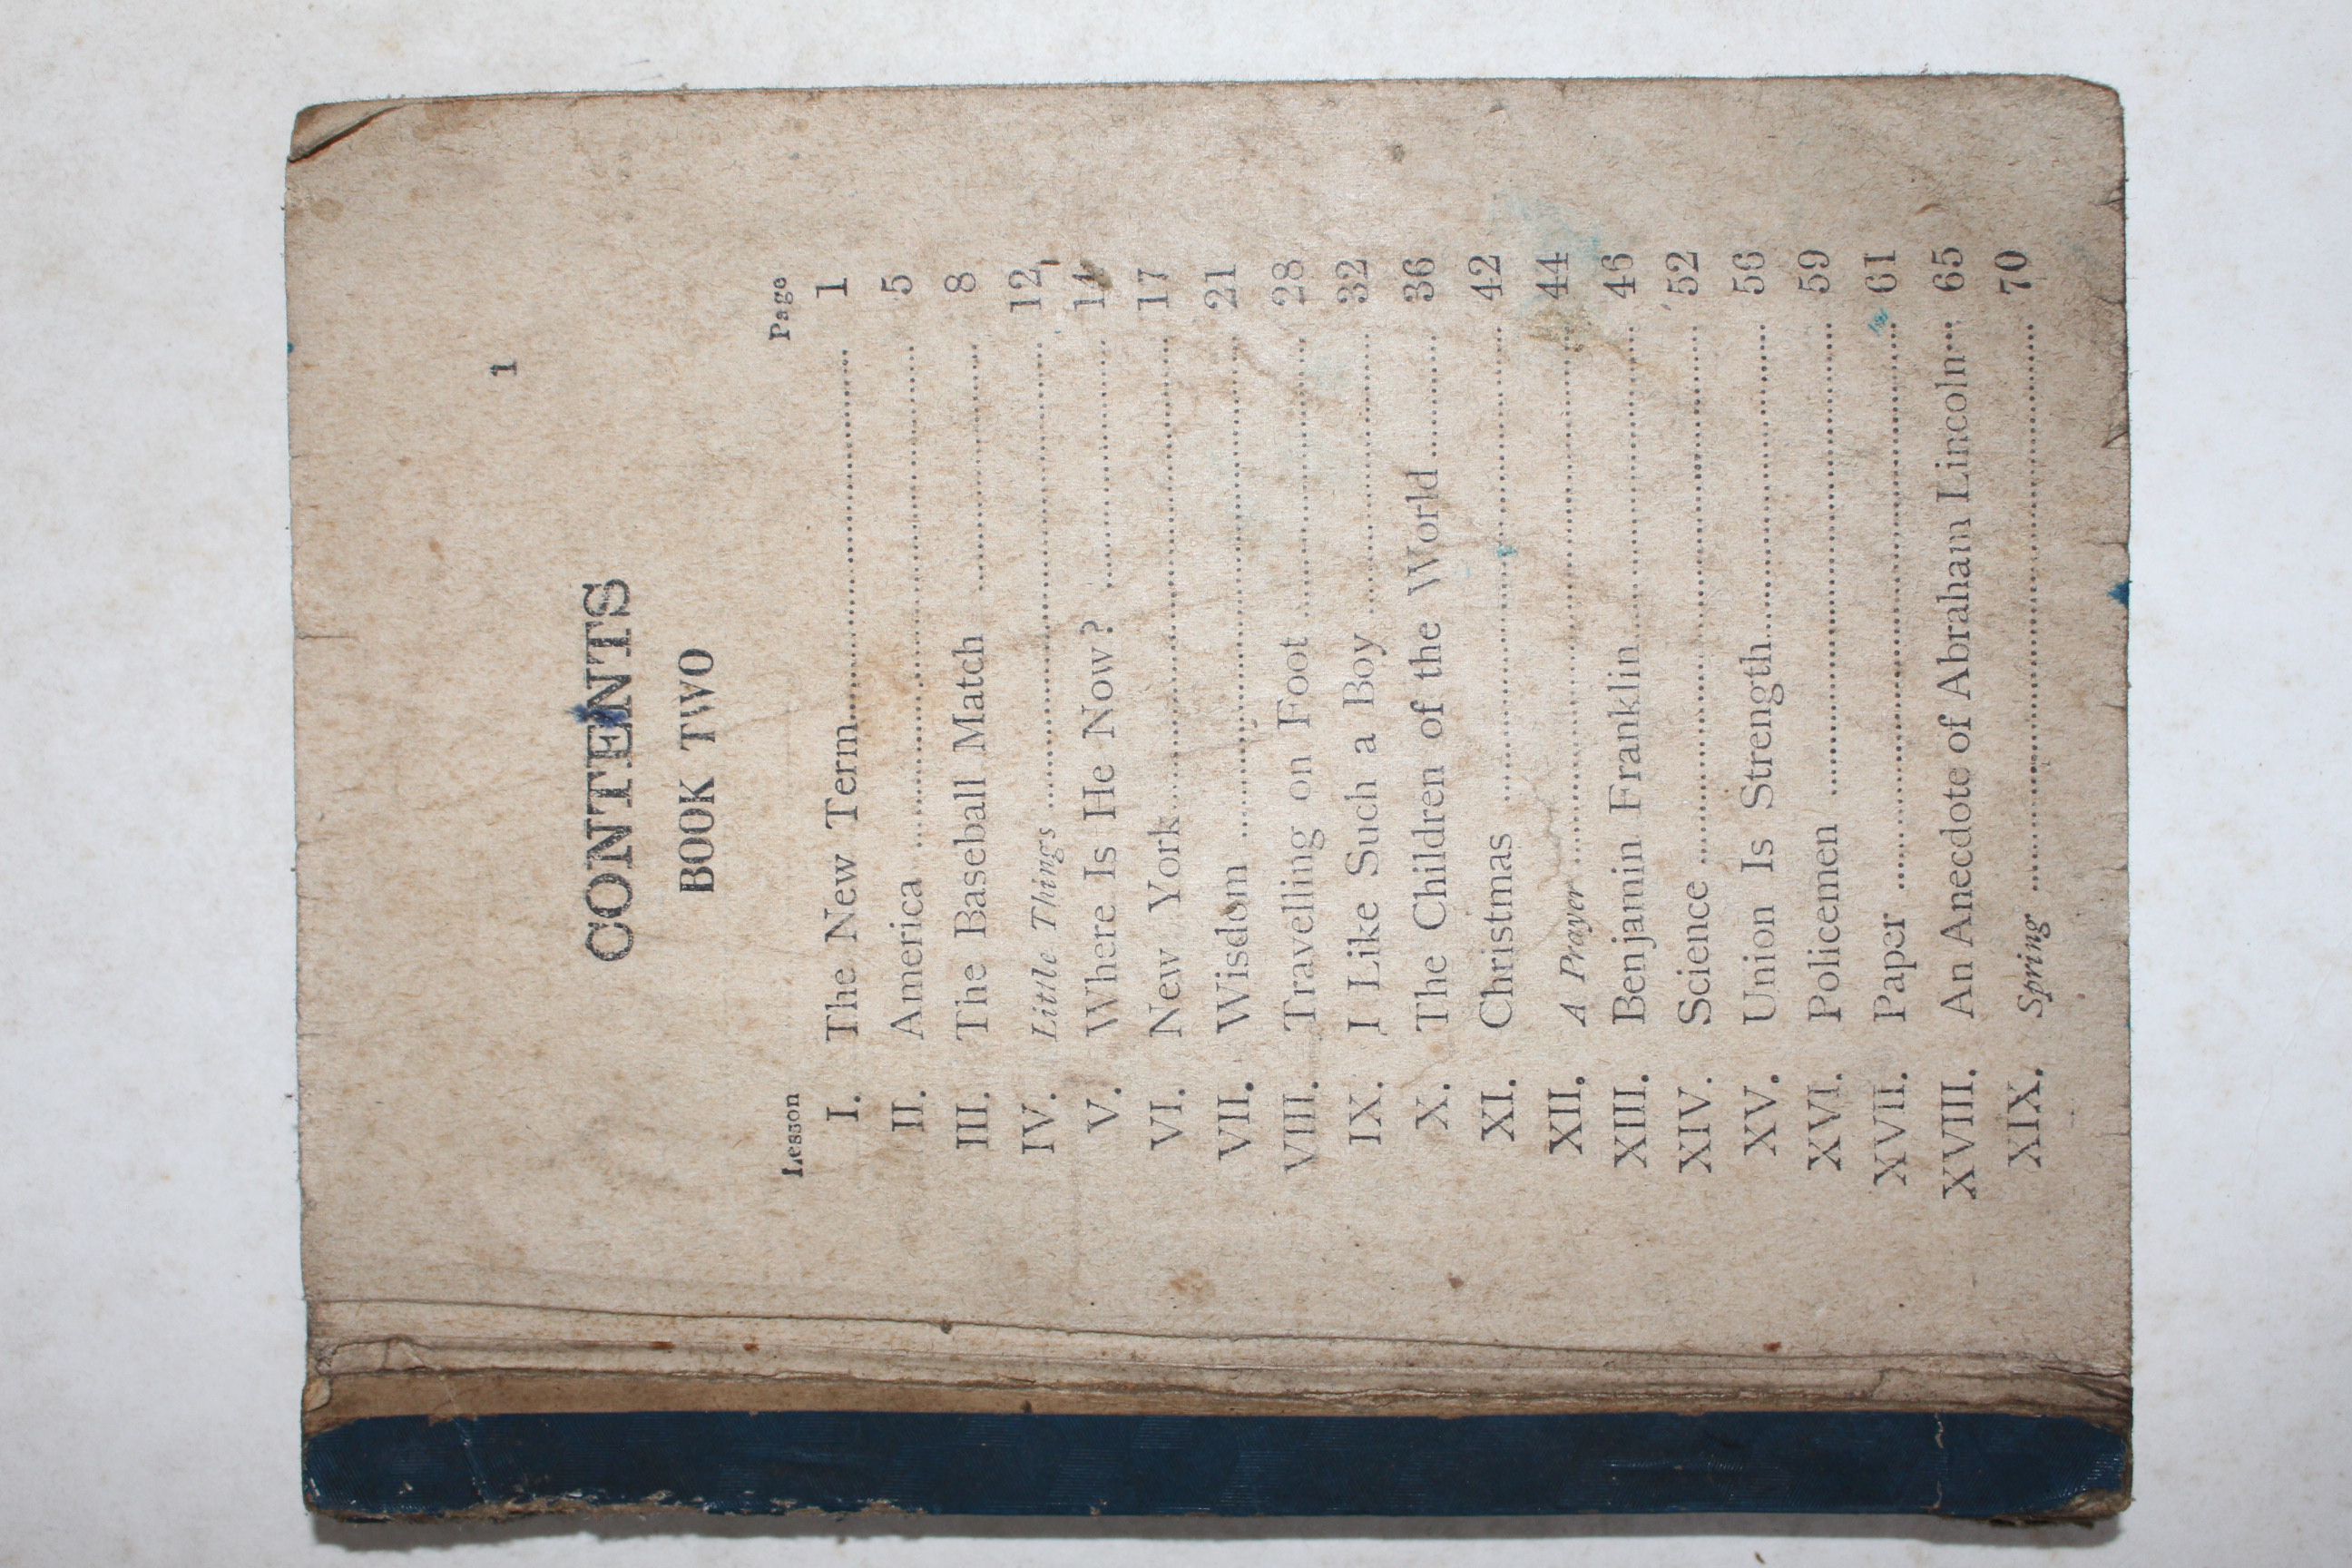 1
CONTENTS
BOOK TWO
Lesson Page
I. The New Term 1
II. America 5
III. The Baseball Match 8
IV. Little Things 12
V. Where Is He Now? 14
VI. New York 17
VII. Wisdom 21
VIII. Travelling on Foot 28
IX. I Like Such a Boy 32
X. The Children of the World 36
XI. Christmas 42
XII. A Prayer 44
XIII. Benjamin Franklin 46
XIV. Science 52
XV. Union Is Strength 56
XVI. Policemen 59
XVII. Paper 61
XVIII. An Anecdote of Abraham Lincoln 65
XIX. Spring 70